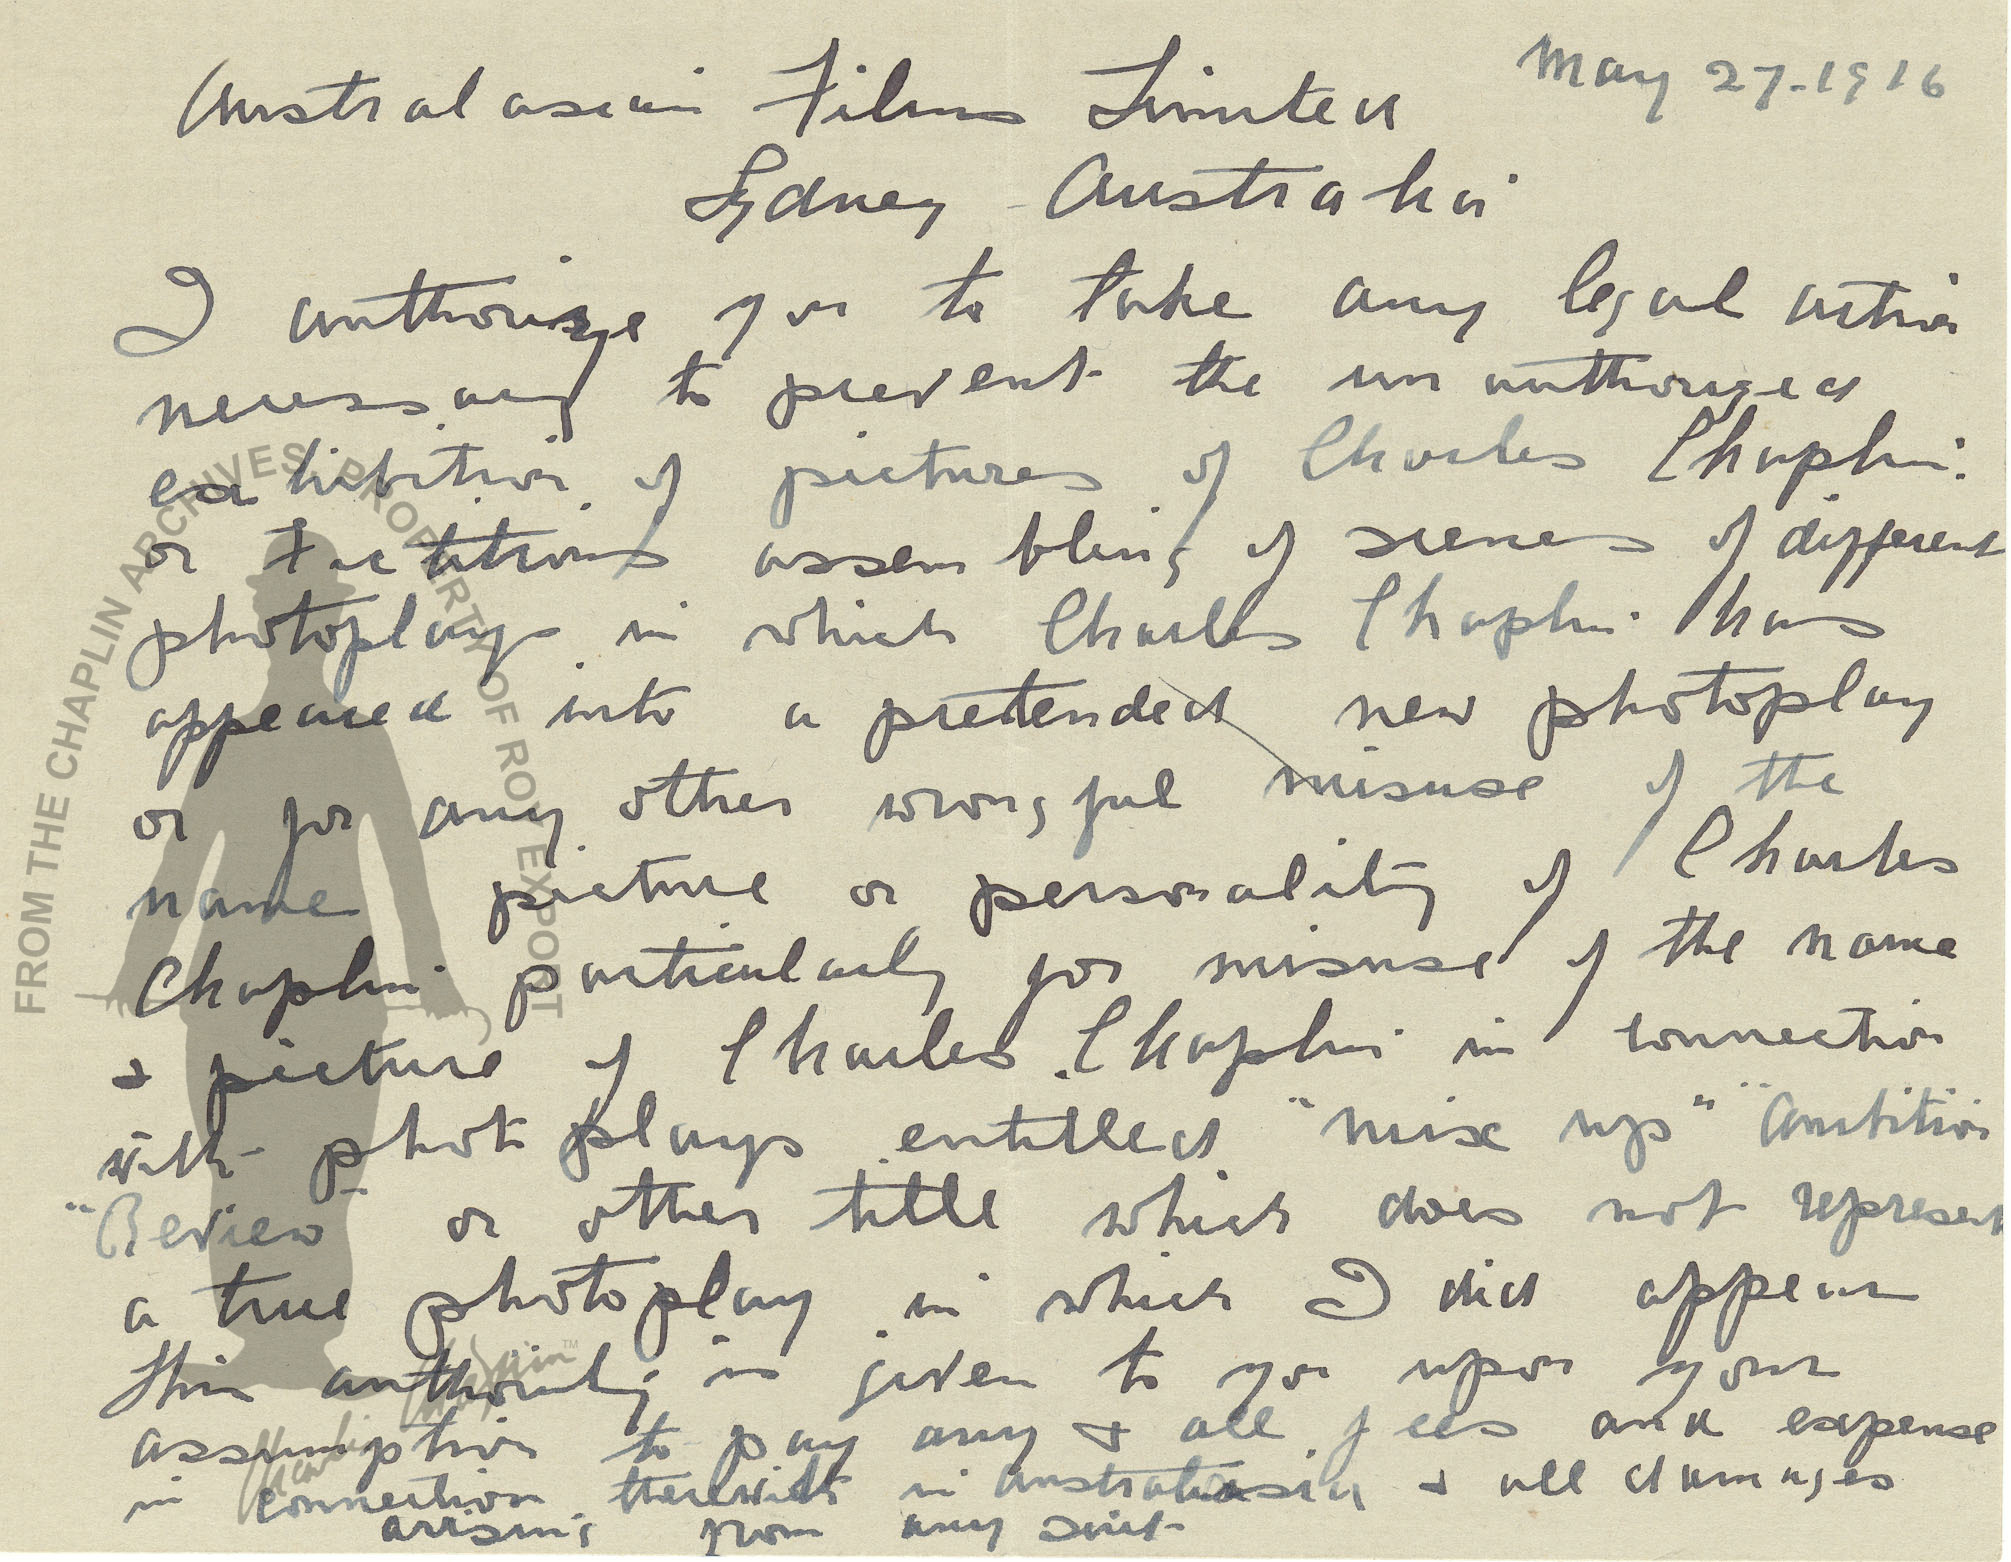 May 27-1916
Australasian Films Limited
Sydney Australia
I authorize you to take any legal action
necessary to prevent the unauthorized
exhibition of pictures of Charles Chaplin.
or fictitious assembling of scenes of different
photoplays in which Charles Chaplin has
appeared into a pretended new photoplay
or for any other wrongful misuse of the
name picture or personality of Charles
Chaplin particularly for misuse of the name
& picture of Charles Chaplin in connection
with photoplays entitled "Mix up" "Ambition
"Review" or other title which does not represent
a true photoplay in which I did appear
This authority is given to you upon your
assumption to pay any & all fees and expense
in connection therewith in Australasia & all damages
arising from any suit
FROM THE CHAPLIN ARCHIVES, PROPERTY OF ROY EXPORT
Charlie Chaplin™